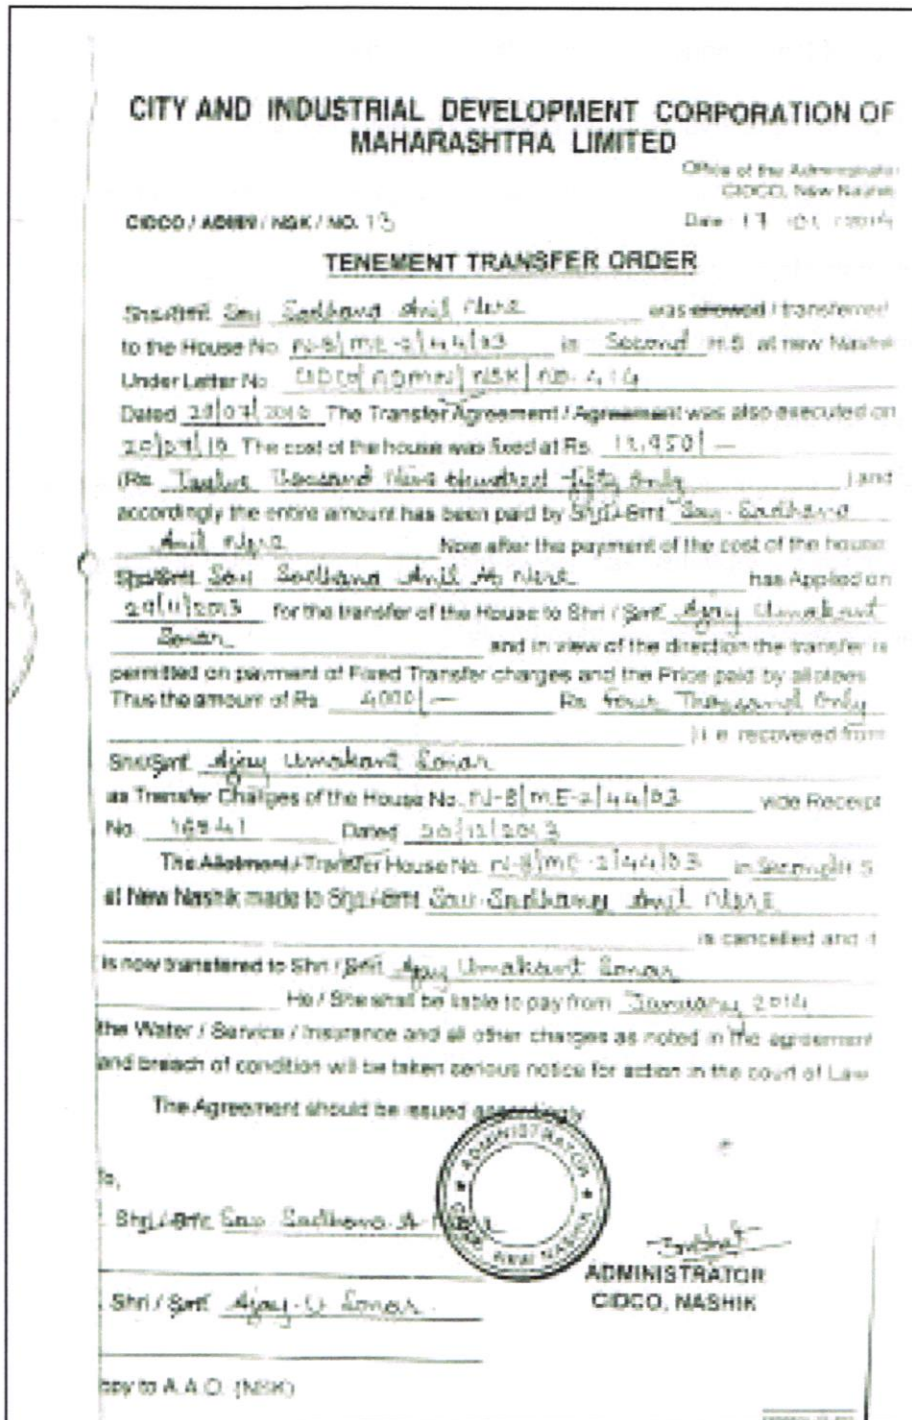 CITY AND INDUSTRIAL DEVELOPMENT CORPORATION OF
MAHARASHTRA LIMITED
Office of the Administrator
CIDCO, New Nashik
CIDCO / ADMN / NSK / NO. 13
Date
TENEMENT TRANSFER ORDER
Shri/Smt. Sou Sadhana Anil Nere was allowed / transferred
to the House No. N-8|ME-2|44|03 in Second H.S. at new Nashik
Under Letter No. CIDCO|ADMN|NSK|NO.
Dated The Transfer Agreement / Agreement was also executed on
The cost of the house was fixed at Rs. 12,950/-
(Rs. Twelve Thousand Nine Hundred fifty only ) and
accordingly the entire amount has been paid by Shri/Smt Sou. Sadhana
Anil Nere Now after the payment of the cost of the house
Shri/Smt. Sou Sadhana Anil Nere has Applied on
for the transfer of the House to Shri / Smt. Ajay Umakant
Sonar and in view of the direction the transfer is
permitted on payment of Fixed Transfer charges and the Price paid by allotees
Thus the amount of Rs. 4000/- Rs. Four Thousand Only
) i.e. recovered from
Shri/Smt. Ajay Umakant Sonar
as Transfer Charges of the House No. N-8|ME-2|44|03 vide Receipt
No. Dated 20|12|2013
The Allotment / Transfer House No. N-8|ME-2|44|03 in Second H.S
at New Nashik made to Shri/Smt Sou. Sadhana Anil Nere
is cancelled and it
is now transferred to Shri / Smt. Ajay Umakant Sonar
He / She shall be liable to pay from January, 2014
the Water / Service / Insurance and all other charges as noted in the agreement
and breach of condition will be taken serious notice for action in the court of Law
The Agreement should be issued accordingly
ADMINISTRATOR
CIDCO NEW NASHIK
To,
Shri/Smt. Sou Sadhana A. Nere
ADMINISTRATOR
CIDCO, NASHIK
Shri / Smt. Ajay. U Sonar
opy to A.A.O. (NSK)